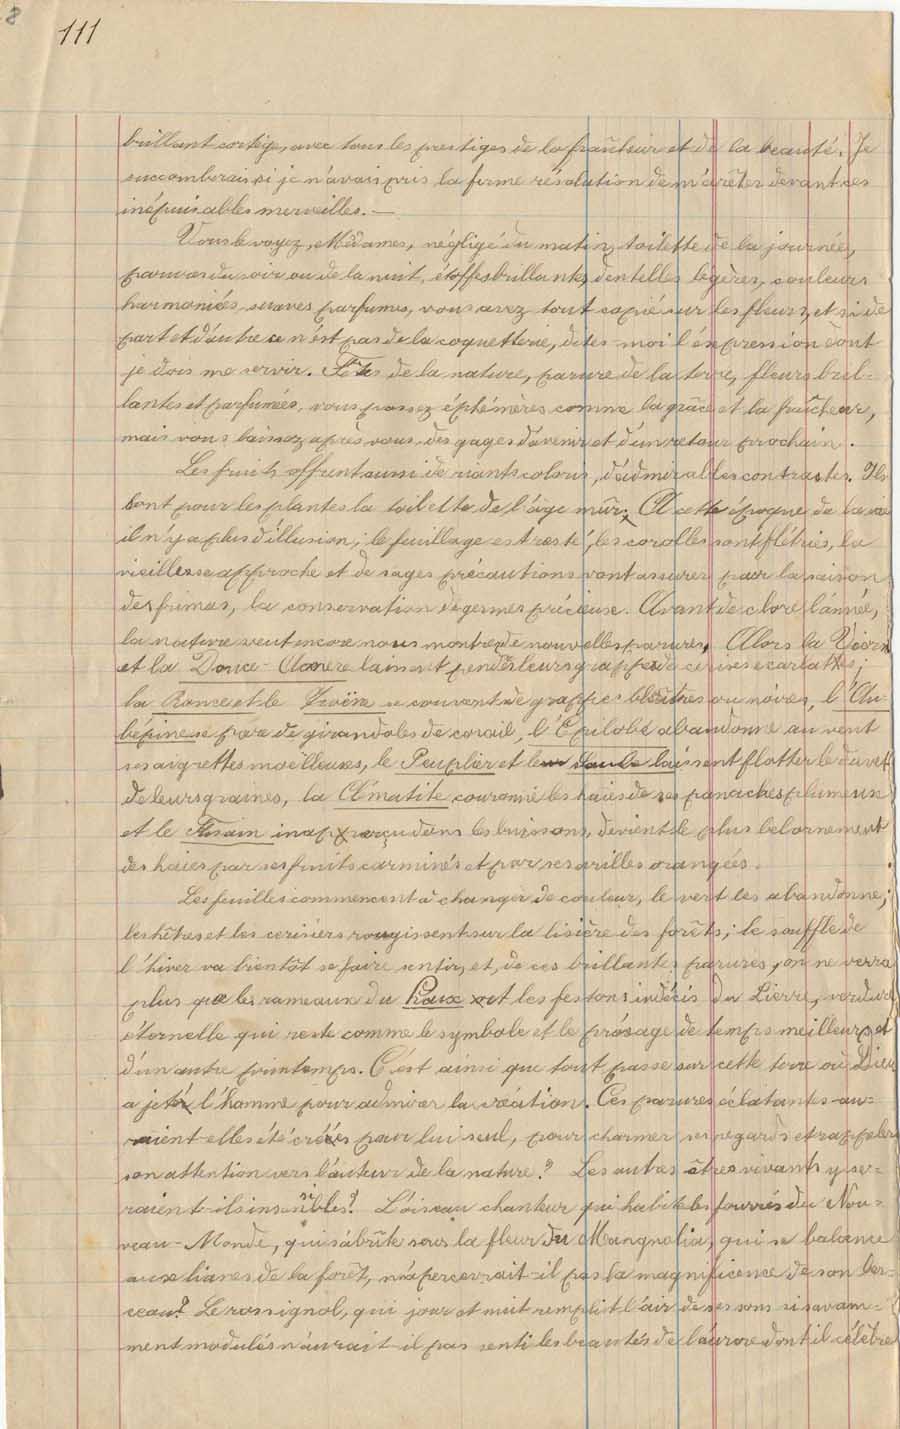 8
111
brillant cortège, avec tous les prestiges de la fraîcheur et de la beauté. Je
succomberais si je n'avais pris la ferme résolution de m'arrêter devant ces
inépuisables merveilles. —
Vous le voyez, Mesdames, négligé du matin, toilette de la journée,
parures du soir ou de la nuit, étoffes brillantes, dentelles légères, couleurs
harmoniées, suaves parfumes, vous avez tout copié sur les fleurs, et si de
part et d'autre ce n'est pas de la coquetterie, dites-moi l'expression dont
je dois me servir. Fêtes de la nature, parure de la terre, fleurs bril-
lantes et parfumées, vous passez éphémères comme la grâce et la fraîcheur,
mais vous laissez après vous des gages d'avenir et d'un retour prochain.
Les fruits offrent aussi de riants coloris, d'admirables contrastes. Ils
sont pour les plantes la toilette de l'âge mûr. A cette époque de la vie
il n'y a plus d'illusion; le feuillage est resté, les corolles sont flétries, la
vieillesse approche et de sages précautions vont assurer pour la saison
des frimas, la conservation de germes précieuse. Avant de clore l'année,
la nature veut encore nous montrer de nouvelles parures. Alors la Viorne
et la Douce-Amère laissent pendre leurs grappes de cerises écarlattes;
la Ronce et le Troëne se couvrent de grappes bleuâtres ou noires, l'Au-
bépine se pare de girandoles de corail, l'Epilobe abandonne au vent
ses aigrettes moëlleuses, le Peuplier et le Saule laissent flotter le duvet
de leurs graines, la Clématite couronne les haies de ses panaches plumeuse
et le Fusain inaperçu dans les buissons, devient le plus bel ornement
des haies par ses fruits carminés et par ses arilles orangées.
Les feuilles commencent à changer de couleur, le vert les abandonne;
les hêtres et les cerisiers rougissent sur la lisière des forêts; le souffle de
l'hiver va bientôt se faire sentir, et, de ces brillantes parures, on ne verra
plus que les rameaux du Houx et les festons indécis du Lierre, verdure
éternelle qui reste comme le symbole et le présage de temps meilleurs et
d'un autre printemps. C'est ainsi que tout passe sur cette terre où Dieu
a jeté l'homme pour admirer la création. Ces parures éclatantes au-
raient-elles été créées pour lui seul, pour charmer ses regards et rappeler
son attention vers l'auteur de la nature? Les autres êtres vivants y se-
raient-ils insensibles? L'oiseau chanteur qui habite les fourrés du Nou-
veau-Monde, qui s'abrite sous la fleur du Mangnolia, qui se balance
aux lianes de la forêt, n'apercevrait-il pas la magnificence de son ber-
ceau? Le rossignol, qui jour et nuit remplit l'air de ses sons si savam-
ment modulés n'aurait-il pas senti les beautés de l'aurore dont il célèbre